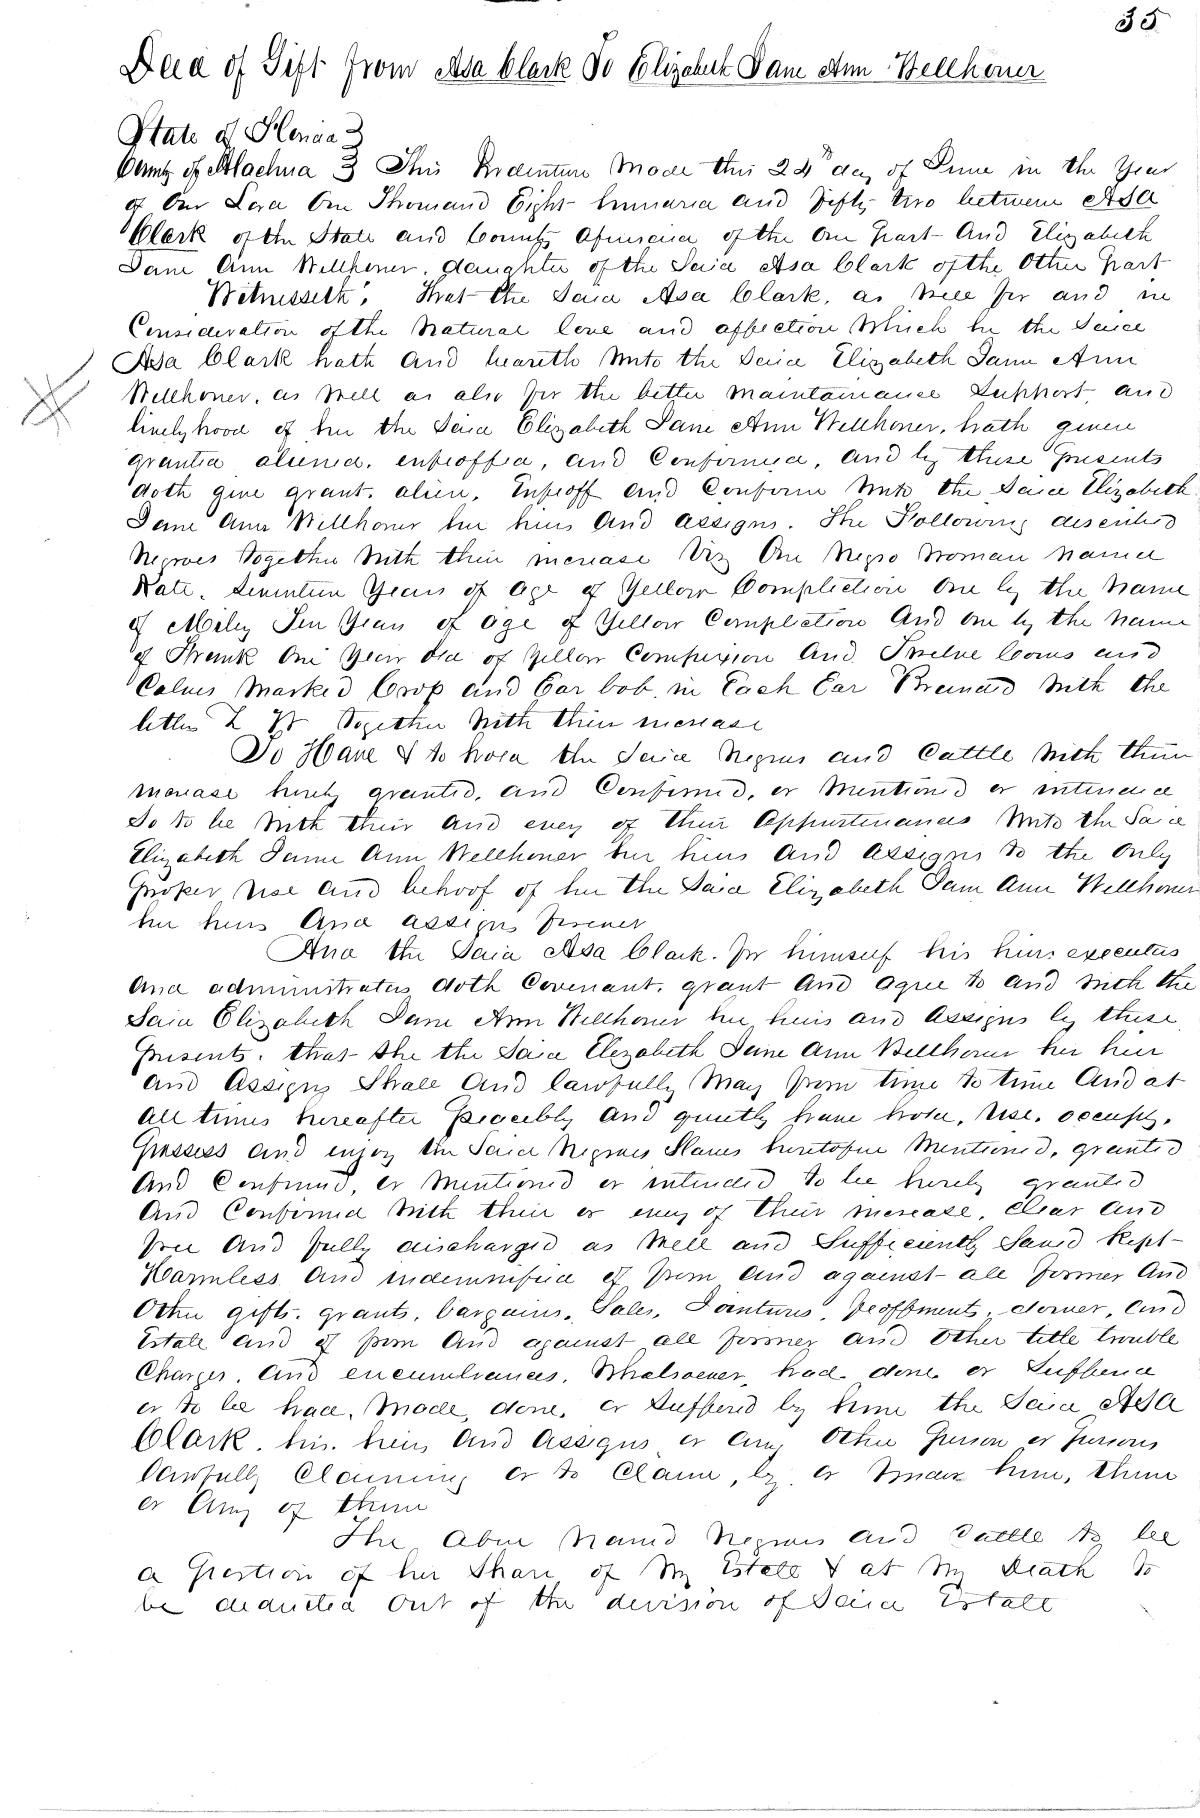 35
Deed of Gift from Asa Clark To Elizabeth Jane Ann Wellhoner
State of Florida }
County of Alachua } This Indenture Made this 24th day of June in the Year
of Our Lord One Thousand Eight hundred and fifty two between Asa
Clark of the State and County aforesaid of the One part And Elizabeth
Jane Ann Wellhoner. daughter of the Said Asa Clark of the Other part
Witnesseth, That the Said Asa Clark, as well for and in
Consideration of the Natural love and affection Which he the Said
Asa Clark hath and beareth Unto the Said Elizabeth Jane Ann
Wellhoner. as well as also for the better maintainance Support, and
livelyhood of her the Said Elizabeth Jane Ann Wellhoner, hath given
granted aliened. enfeoffed, and Confirmed, and by these presents
doth give grant. alien, Enfeoff and Confirm Unto the Said Elizabeth
Jane Ann Wellhoner her heirs And assigns. The Following described
Negroes Together With their increase Viz One Negro Woman Named
Kate. Seventeen Years of Age of Yellow Complection One by the Name
of Miley Ten Years of age of Yellow Complection And one by the Name
of Frank One Year Old of Yellow Complexion And Twelve Cows and
Calves Marked Crop and Ear bob in Each Ear Branded With the
letters Z W Together With their increase
To Have & to hold the Said Negroes and Cattle With their
increase hereby granted, and Confirmed, or Mentioned or intended
So to be With their and every of their Appurtenances Unto the Said
Elizabeth Jane Ann Wellhoner her heirs And assigns to the Only
proper Use and behoof of her the Said Elizabeth Jane Ann Wellhoner
her heirs And assigns forever
And the Said Asa Clark. for himself his heirs executors
And administrators doth Covenant. grant And Agree to And With the
Said Elizabeth Jane Ann Wellhoner her heirs and Assigns by these
presents. that She the Said Elizabeth Jane Ann Wellhoner her heir
and Assigns Shall And lawfully May from time to time And at
All times hereafter peaceably and quietly have hold, Use. occupy.
possess and enjoy the Said Negroes Slaves heretofore Mentioned, granted
And Confirmed, or Mentioned or intended to be hereby granted
And Confirmed With their or every of their increase, Clear And
free And fully discharged as Well and Sufficiently Saved kept
Harmless And indemnified of from and against all former And
Other gifts. grants. bargains. Sales. Jointures, feoffments. dower. And
Estate and of from And against all former and Other title trouble
Charges. And encumbrances. Whatsoever, had done or Suffered
or to be had. Made, done. or Suffered by him the Said Asa
Clark. his. heirs And Assigns or any Other person or persons
lawfully Claiming or to Claim, by or Under him, them
or Any of them
The Above Named Negroes and Cattle to be
a portion of her Share of My Estate & at My Death to
be deducted Out of the devision of Said Estate